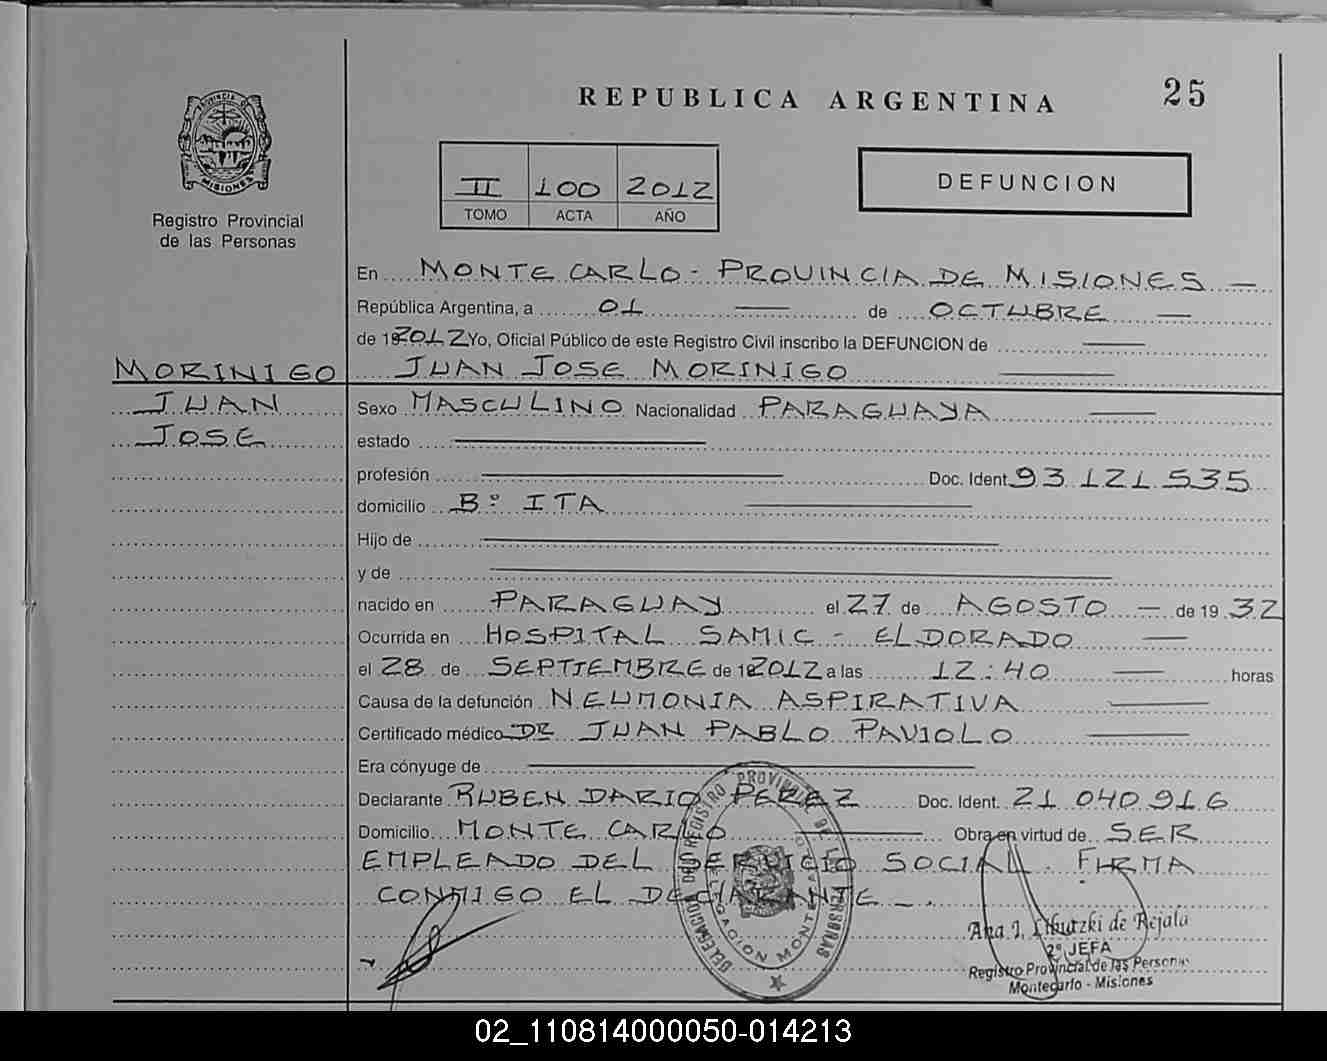 REPUBLICA ARGENTINA
25
PROVINCIA DE MISIONES
Registro Provincial
de las Personas
II 100 2012
TOMO ACTA AÑO
DEFUNCION
En MONTE CARLO - PROVINCIA DE MISIONES —
República Argentina, a 01 — de OCTUBRE —
de 2012 Yo, Oficial Público de este Registro Civil inscribo la DEFUNCION de —
MORINIGO
JUAN JOSE MORINIGO —
JUAN
JOSE
Sexo MASCULINO Nacionalidad PARAGUAYA —
estado —
profesión — Doc. Ident. 93 121 535
domicilio B° ITA —
Hijo de —
y de —
nacido en PARAGUAY el 27 de AGOSTO — de 19 32
Ocurrida en HOSPITAL SAMIC - ELDORADO —
el 28 de SEPTIEMBRE de 2012 a las 12:40 — horas
Causa de la defunción NEUMONIA ASPIRATIVA —
Certificado médico DR JUAN PABLO PAVIOLO —
Era cónyuge de —
Declarante RUBEN DARIO PEREZ Doc. Ident. 21 040 916
Domicilio MONTE CARLO — Obra en virtud de SER
EMPLEADO DEL SERVICIO SOCIAL. FIRMA
CONMIGO EL DECLARANTE -.
REGISTRO PROVINCIAL DE LAS PERSONAS
DELEGACION MONTECARLO
Ana I. Libutzki de Rejala
2º JEFA
Registro Provincial de las Personas
Montecarlo - Misiones
02_110814000050-014213